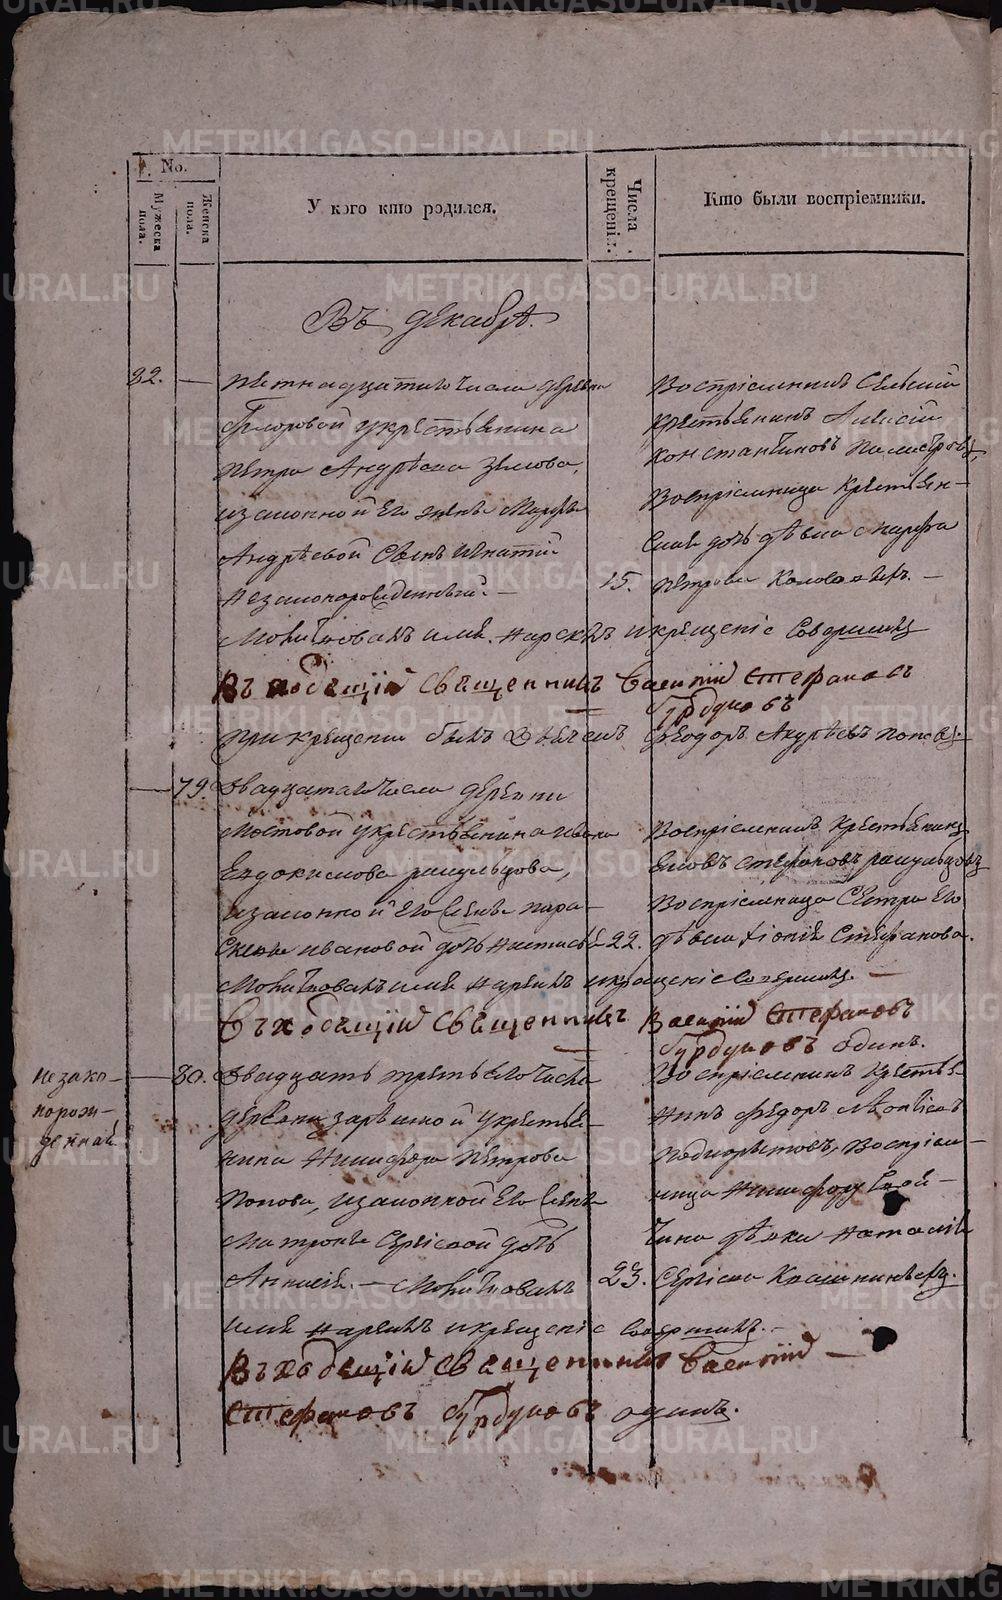 No.
Мужеска пола.
Женска пола.
У кого кто родился.
Числа крещенія.
Кто были воспріемники.
Въ декабрѣ.
82. — Пятнадцатаго Числа дерев
у крестьянина
Петра Андрѣева
изаконной Его жены Марѳы
Андрѣевой Сынъ Игнатій
Незаконорожденный. —
Воспріемникъ Сельскій
Крестьянинъ Алексій
Константиновъ
Воспріемница Крестьян-
ская дочь дѣвка Марфа
15. Петрова —
Молитвовалъ имя Нарекъ и крещеніе Совершилъ
Въ ходящій Священникъ Василій Стефановъ
Бурдуковъ
При крещеніи былъ Дьячекъ Ѳеодоръ Андрѣевъ Поповъ.
79. Двадцатаго Числа деревни
Мостовой у крестьянина Ивана
Евдокимова
изаконной Его Жены Пара-
скевы Ивановой дочь Настасья
Воспріемникъ Крестьянинъ
Стефановъ
Воспріемница Сестра Его
22. дѣвка Ѳіонія Стефанова.
Молитвовалъ имя Нарекъ и крещеніе Совершилъ. —
Въ ходящій Священникъ Василій Стефановъ
Бурдуковъ Одинъ.
Незако-
норож-
денная
80. Двадцать третьяго Числа
деревни у крестья-
нина Никифора Петрова
Попова, изаконной Его Жены
Матроны Сергіевой дочь
Анисія. — Молитвовалъ
Воспріемникъ крестья-
нинъ Ѳедоръ Леонтіевъ
Воспріем-
ница
дѣвка Наталія
23. Сергіева
имя нарекъ и крещеніе Совершилъ. —
Въ ходящій Священникъ Василій —
Стефановъ Бурдуковъ одинъ.
METRIKI.GASO-URAL.RU